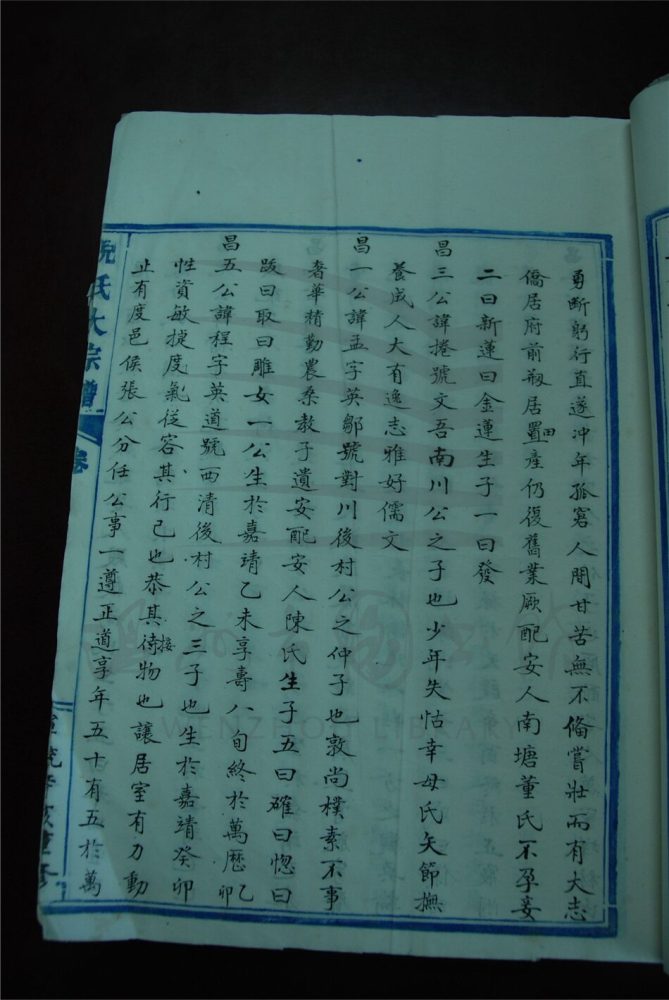 勇斷躬行直遂冲年孤窮人間甘苦無不備嘗壯而有大志
僑居府前剏居置田產仍復舊業厥配安人南塘董氏不孕妾
二曰新蓮曰金蓮生子一曰發
昌三公諱捲號文吾南川公之子也少年失怙幸母氏矢節撫
養成人大有逸志雅好儒文
昌一公諱孟字英鄒號對川後村公之仲子也敦尚樸素不事
奢華精勤農桑教子遺安配安人陳氏生子五曰確曰惚曰
曰取曰雕女一公生於嘉靖乙未享壽八旬終於萬曆乙卯
昌五公諱程字英道號西清後村公之三子也生於嘉靖癸卯
性資敏捷度氣從容其行己也恭其待接物也讓居室有刀動
止有度邑侯張公分任公事一遵正道享年五十有五於萬
氏大宗譜
卷
重修
WENZHOU LIBRARY